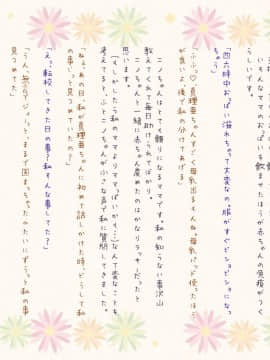 いちんなママのおっぱいを飲ませたほうが赤ちゃんの免疫がつく
らしいです。
「四六時中おっぱい溢れちゃって大変なの…服がすぐビショビショになっ
「ふふ♡真理亜ちゃんすっごく母乳出るもんね。母乳パッド使ったほう
が良いよ？後で私の分けてあげる」
ニノちゃんはとても頼りになるママです。私の知らない事沢山
教えてくれて毎日助けられてばかり。
ニノちゃんと一緒に赤ちゃん産めたのはかなりラッキーだったと
思います。
（もしかしたら私のママよりママっぽいかも…）なんて変なことを
考えてると、ふとニノちゃんが小さな声で私に質問してきました。
「ねぇ、あの日、私が真理亜ちゃんに初めて話しかけた時、どうして私
の事じっと見つめていたの？」
「え？転校してきた日の事？私そんな事してた？」
「うん。無言でジィっと、まるで固まっちゃったみたいにずうっと私の事
見つめてた。」